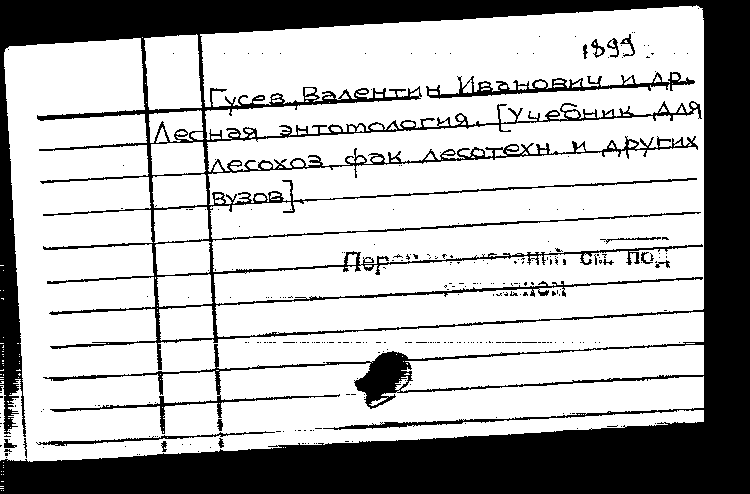 1899
Гусев, Валентин Иванович и др.
Лесная энтомология. [Учебник для
лесохоз. фак. лесотехн. и других
вузов].
см. под